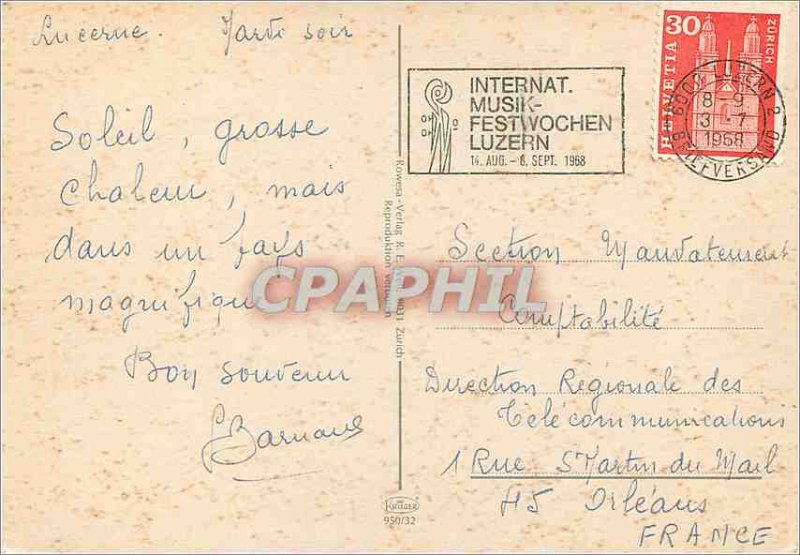 Lucerne. Mardi soir
Soleil, grosse
chaleur, mais
dans un pays
magnifique
Bon souvenir
Barnaud
INTERNAT.
MUSIK-
FESTWOCHEN
LUZERN
14. AUG. - 8. SEPT. 1968
30
HELVETIA
ZÜRICH
6000 LUZERN 2
8-9
3.-7
1968
BRIEFVERSAND
Rowesa-Verlag R. E.
8031 Zürich
Reproduktion verboten
CPAPHIL
Section Mandatement
Comptabilité
Direction Régionale des
Télécommunications
1 Rue St Martin du Mail
45 Orléans
FRANCE
KRÜGER
950/32